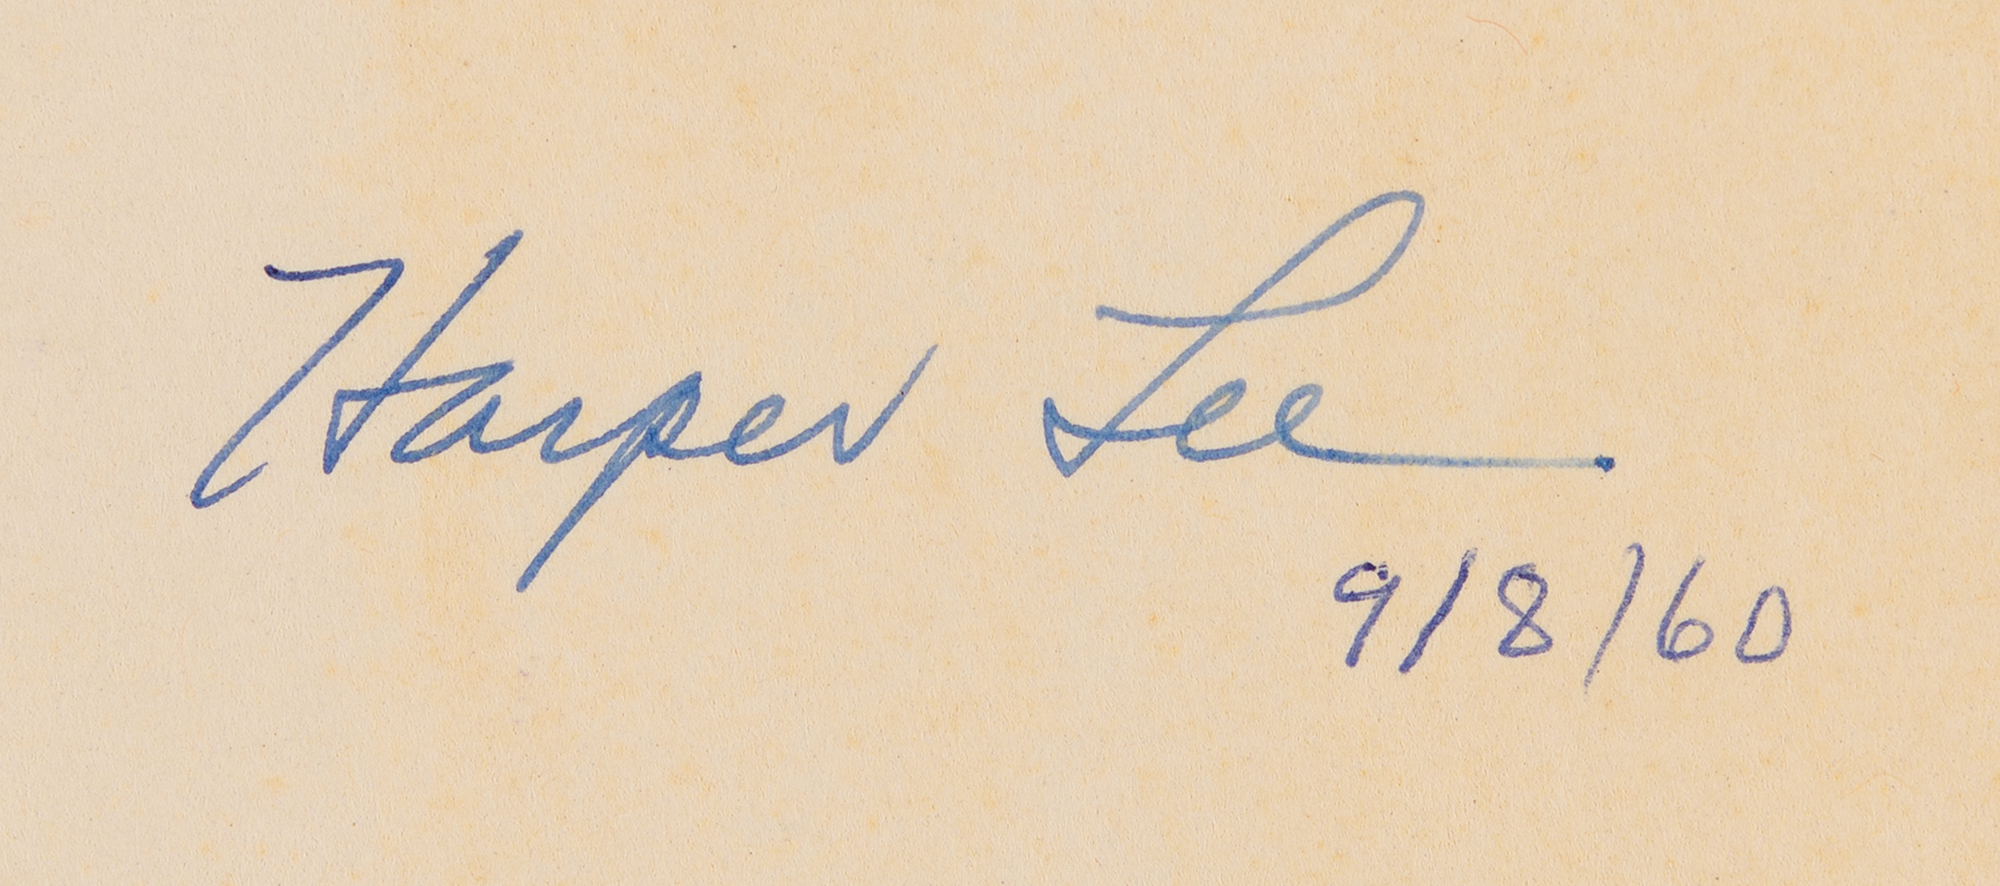 Harper Lee
9/8/60